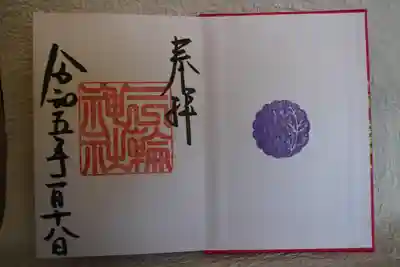 奉拝
三輪神社
令和五年一月十八日